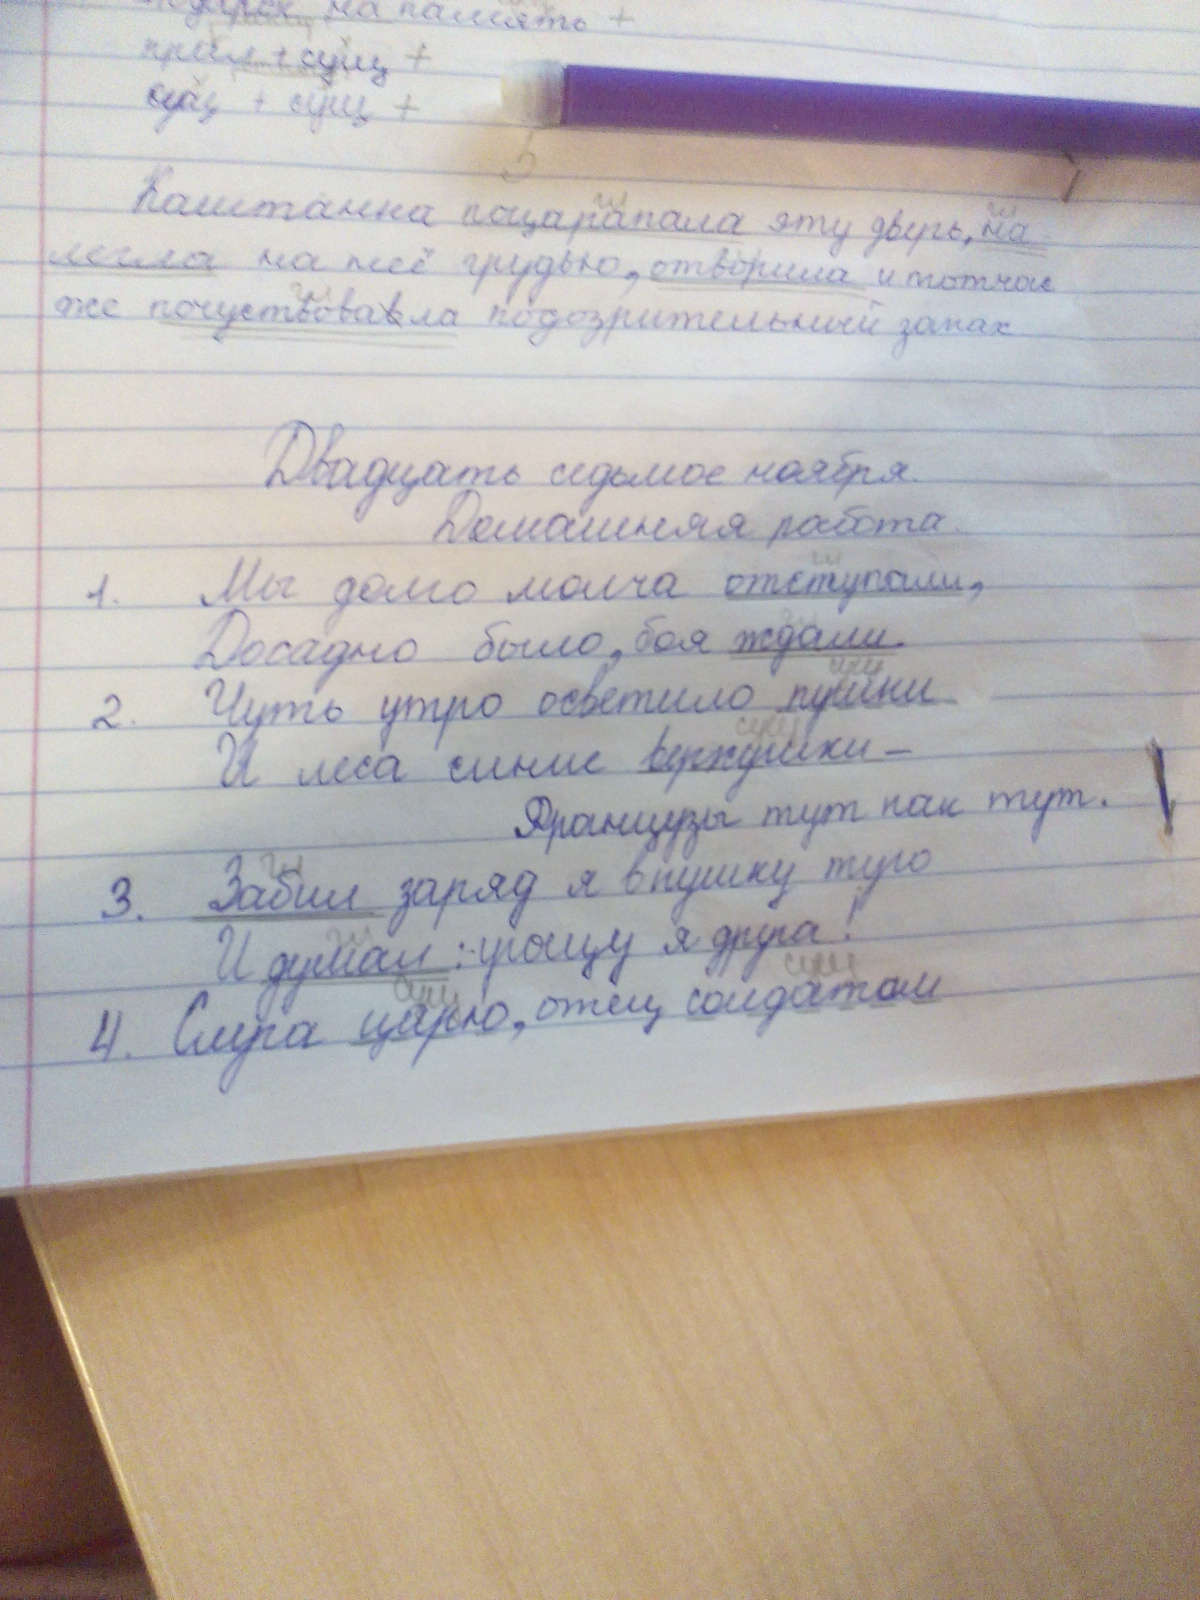 подарок на память +
прил + сущ +
сущ + сущ +
Каштанка поцарапала эту дверь, на-
легла на неё грудью, отворила и тотчас
же почуствовавла подозрительный запах
Двадцать седьмое ноября.
Домашняя работа.
гл
1. Мы долго молча отступали,
Досадно было, боя ждали.
сущ
2. Чуть утро осветило пушки
сущ
И леса синие верхушки –
Французы тут как тут.
гл
3. Забил заряд я в пушку туго
гл
И думал: угощу я друга!
сущ сущ
4. Слуга царю, отец солдатам